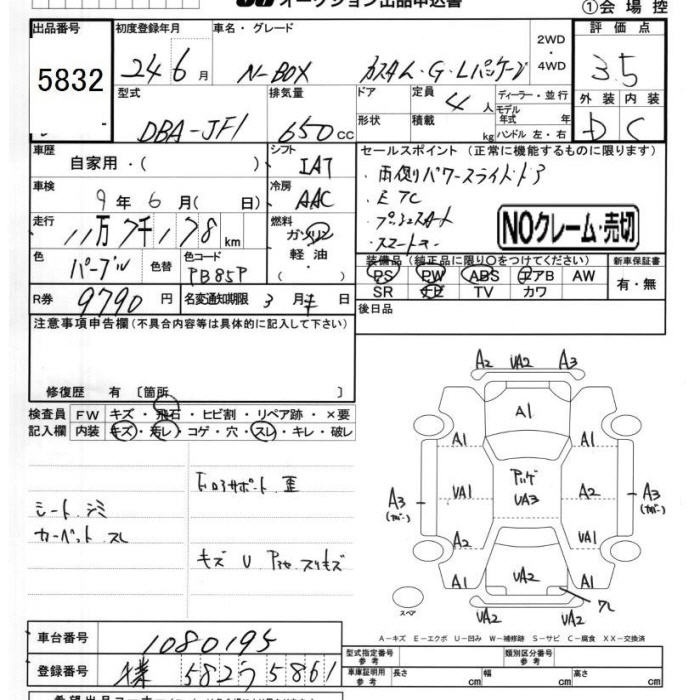 オークション出品申込書
①会場控
出品番号 初度登録年月 車名・グレード 2WD・4WD 評価点
5832 24 6月 N-BOX カスタム・G・Lパッケージ 3.5
型式 排気量 ドア 定員 4人 ディーラー・並行 外装 内装
DBA-JF1 650cc 形状 積載 kg モデル年式 年 D C
ハンドル 左・右
車歴 シフト セールスポイント (正常に機能するものに限ります)
自家用・( ) IAT ・両側パワースライドドア
車検 9年6月( 日) 冷房 AAC ・ETC
走行 11万7千178km 燃料 ガソリン ・プッシュスタート
軽油 ・スマートキー
・( ) NOクレーム・売切
色 パープル 色替 色コード PB85P 装備品 (純正品に限り○をつけてください) 新車保証書
PS PW ABS エアB AW 有・無
R券 9790円 名変通知期限 3月末日 SR TV カワ
注意事項申告欄(不具合内容等は具体的に記入して下さい) 後日品
修復歴 有 〔箇所 〕
検査員 FW キズ・飛石・ヒビ割・リペア跡・×要
記入欄 内装 キズ・汚レ・コゲ・穴・スレ・キレ・破レ
ドロアサポート 歪
シート シミ
カーペット スレ
キズ U
A2 UA2 A3
A1
A1 A1
A3 UA1 UA3 A2 A3
A2 UA1
A1 UA2 A1
UA2 UA2
スペア
A-キズ E-エクボ U-凹み W-補修跡 S-サビ C-腐食 XX-交換済
車台番号 1080195 型式指定番号 参考 類別区分番号 参考
登録番号 582 5861 車庫証明用 参考 長さ cm 幅 cm 高さ cm